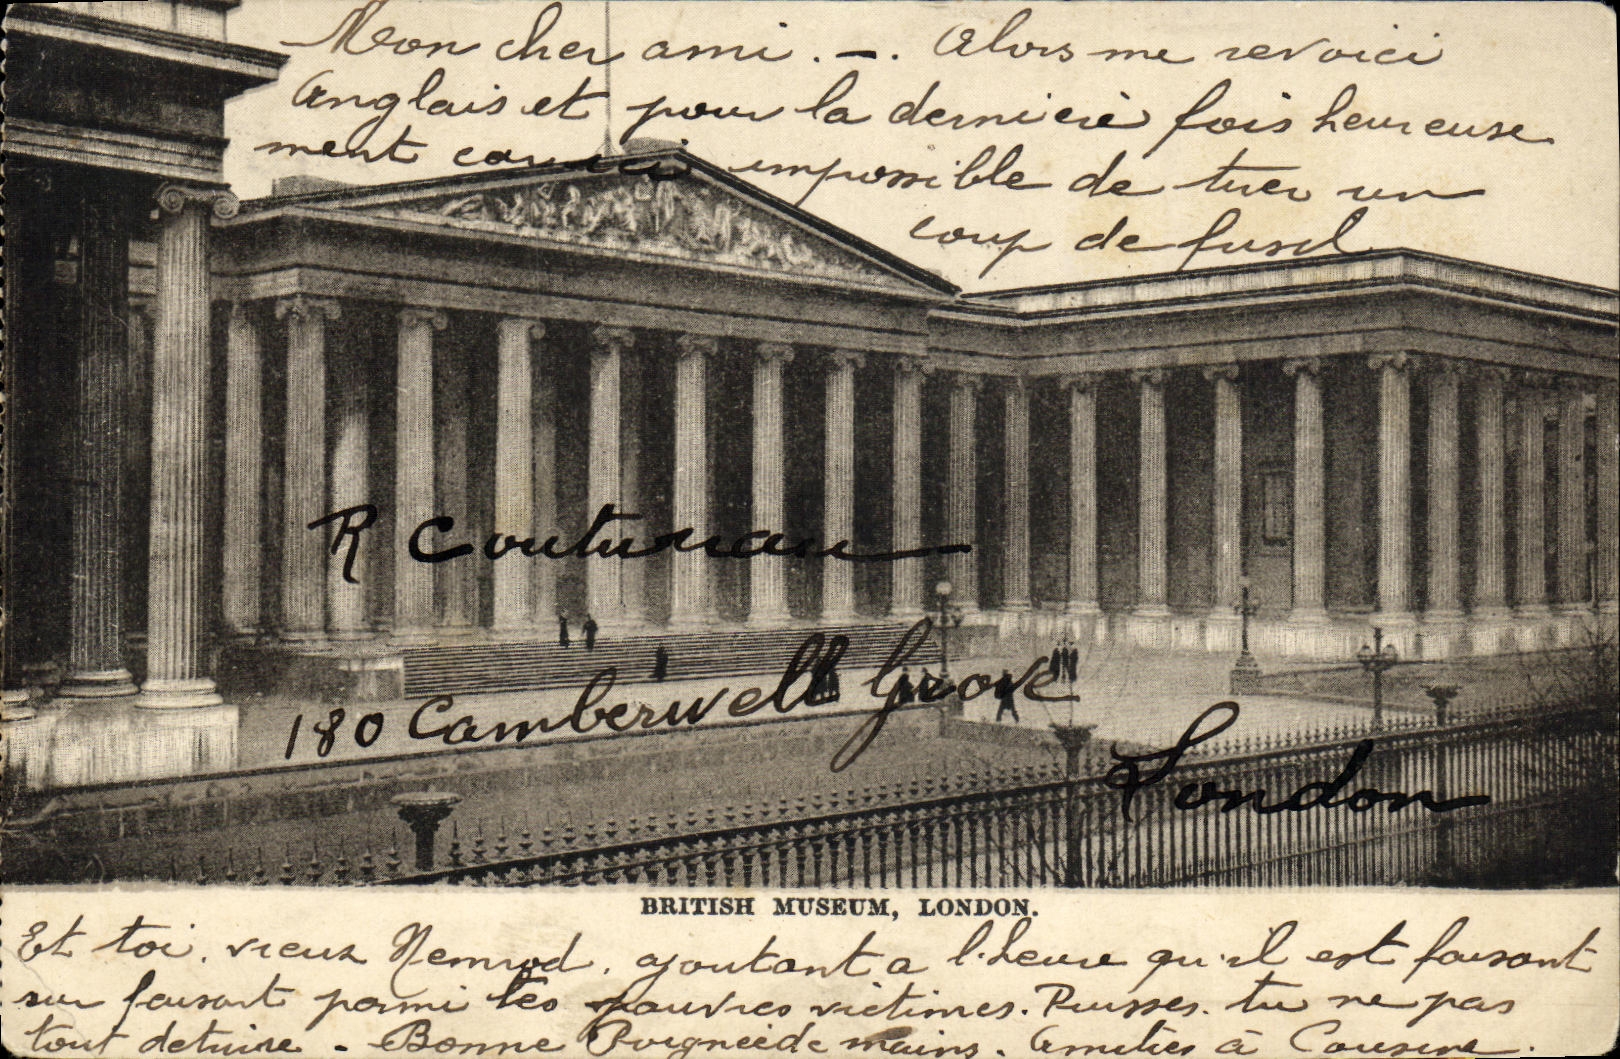 Mon cher ami. —. Alors me revoici
Anglais et pour la dernière fois heureuse
ment car ici impossible de tirer un
coup de fusil
R Coutureau
180 Camberwell Grove
London
BRITISH MUSEUM, LONDON.
Et toi, vieux Nemrod, ajoutant a l'heure qu'il est faisant
sur faisant parmi tes pauvres victimes. Puisses-tu ne pas
tout detruire - Bonne Poignée de mains. Amitiés à Cousine.